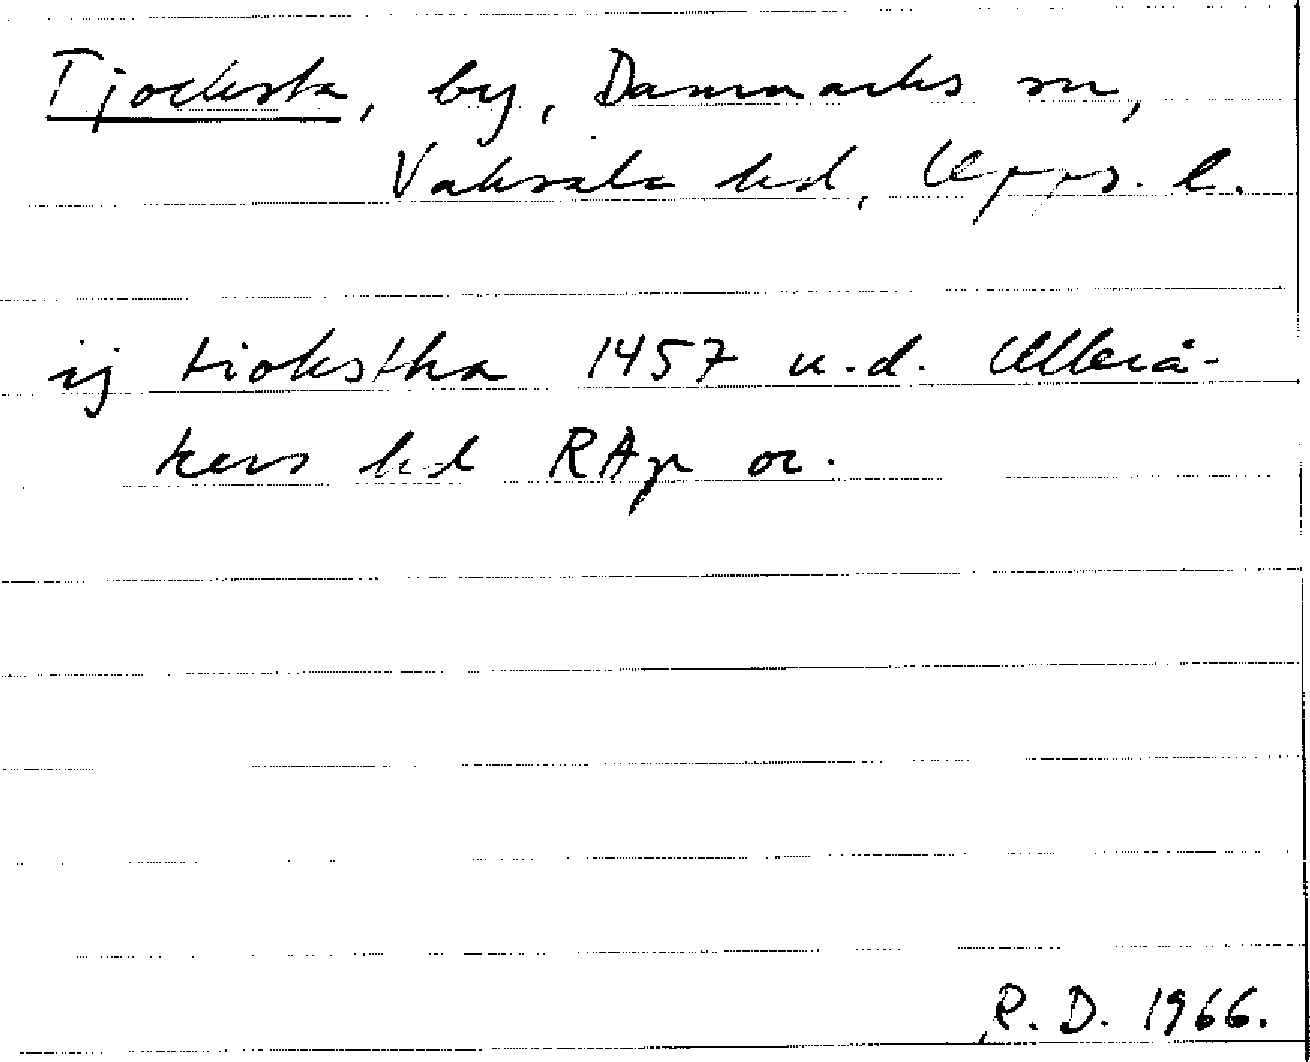 Tjocksta, by, Danmarks sn,
Vaksala hd, Upps. l.
ij tiokstha 1457 u.d. Ullerå-
kers hd RAp or.
R. D. 1966.